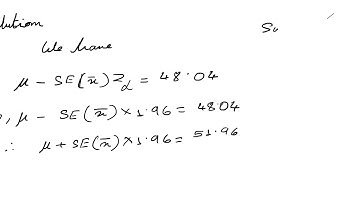 lution
Su
We have
μ - SE(x̄) Z_α = 48.04
, μ - SE(x̄) × 1.96 = 48.04
∴ μ + SE(x̄) × 1.96 = 51.96